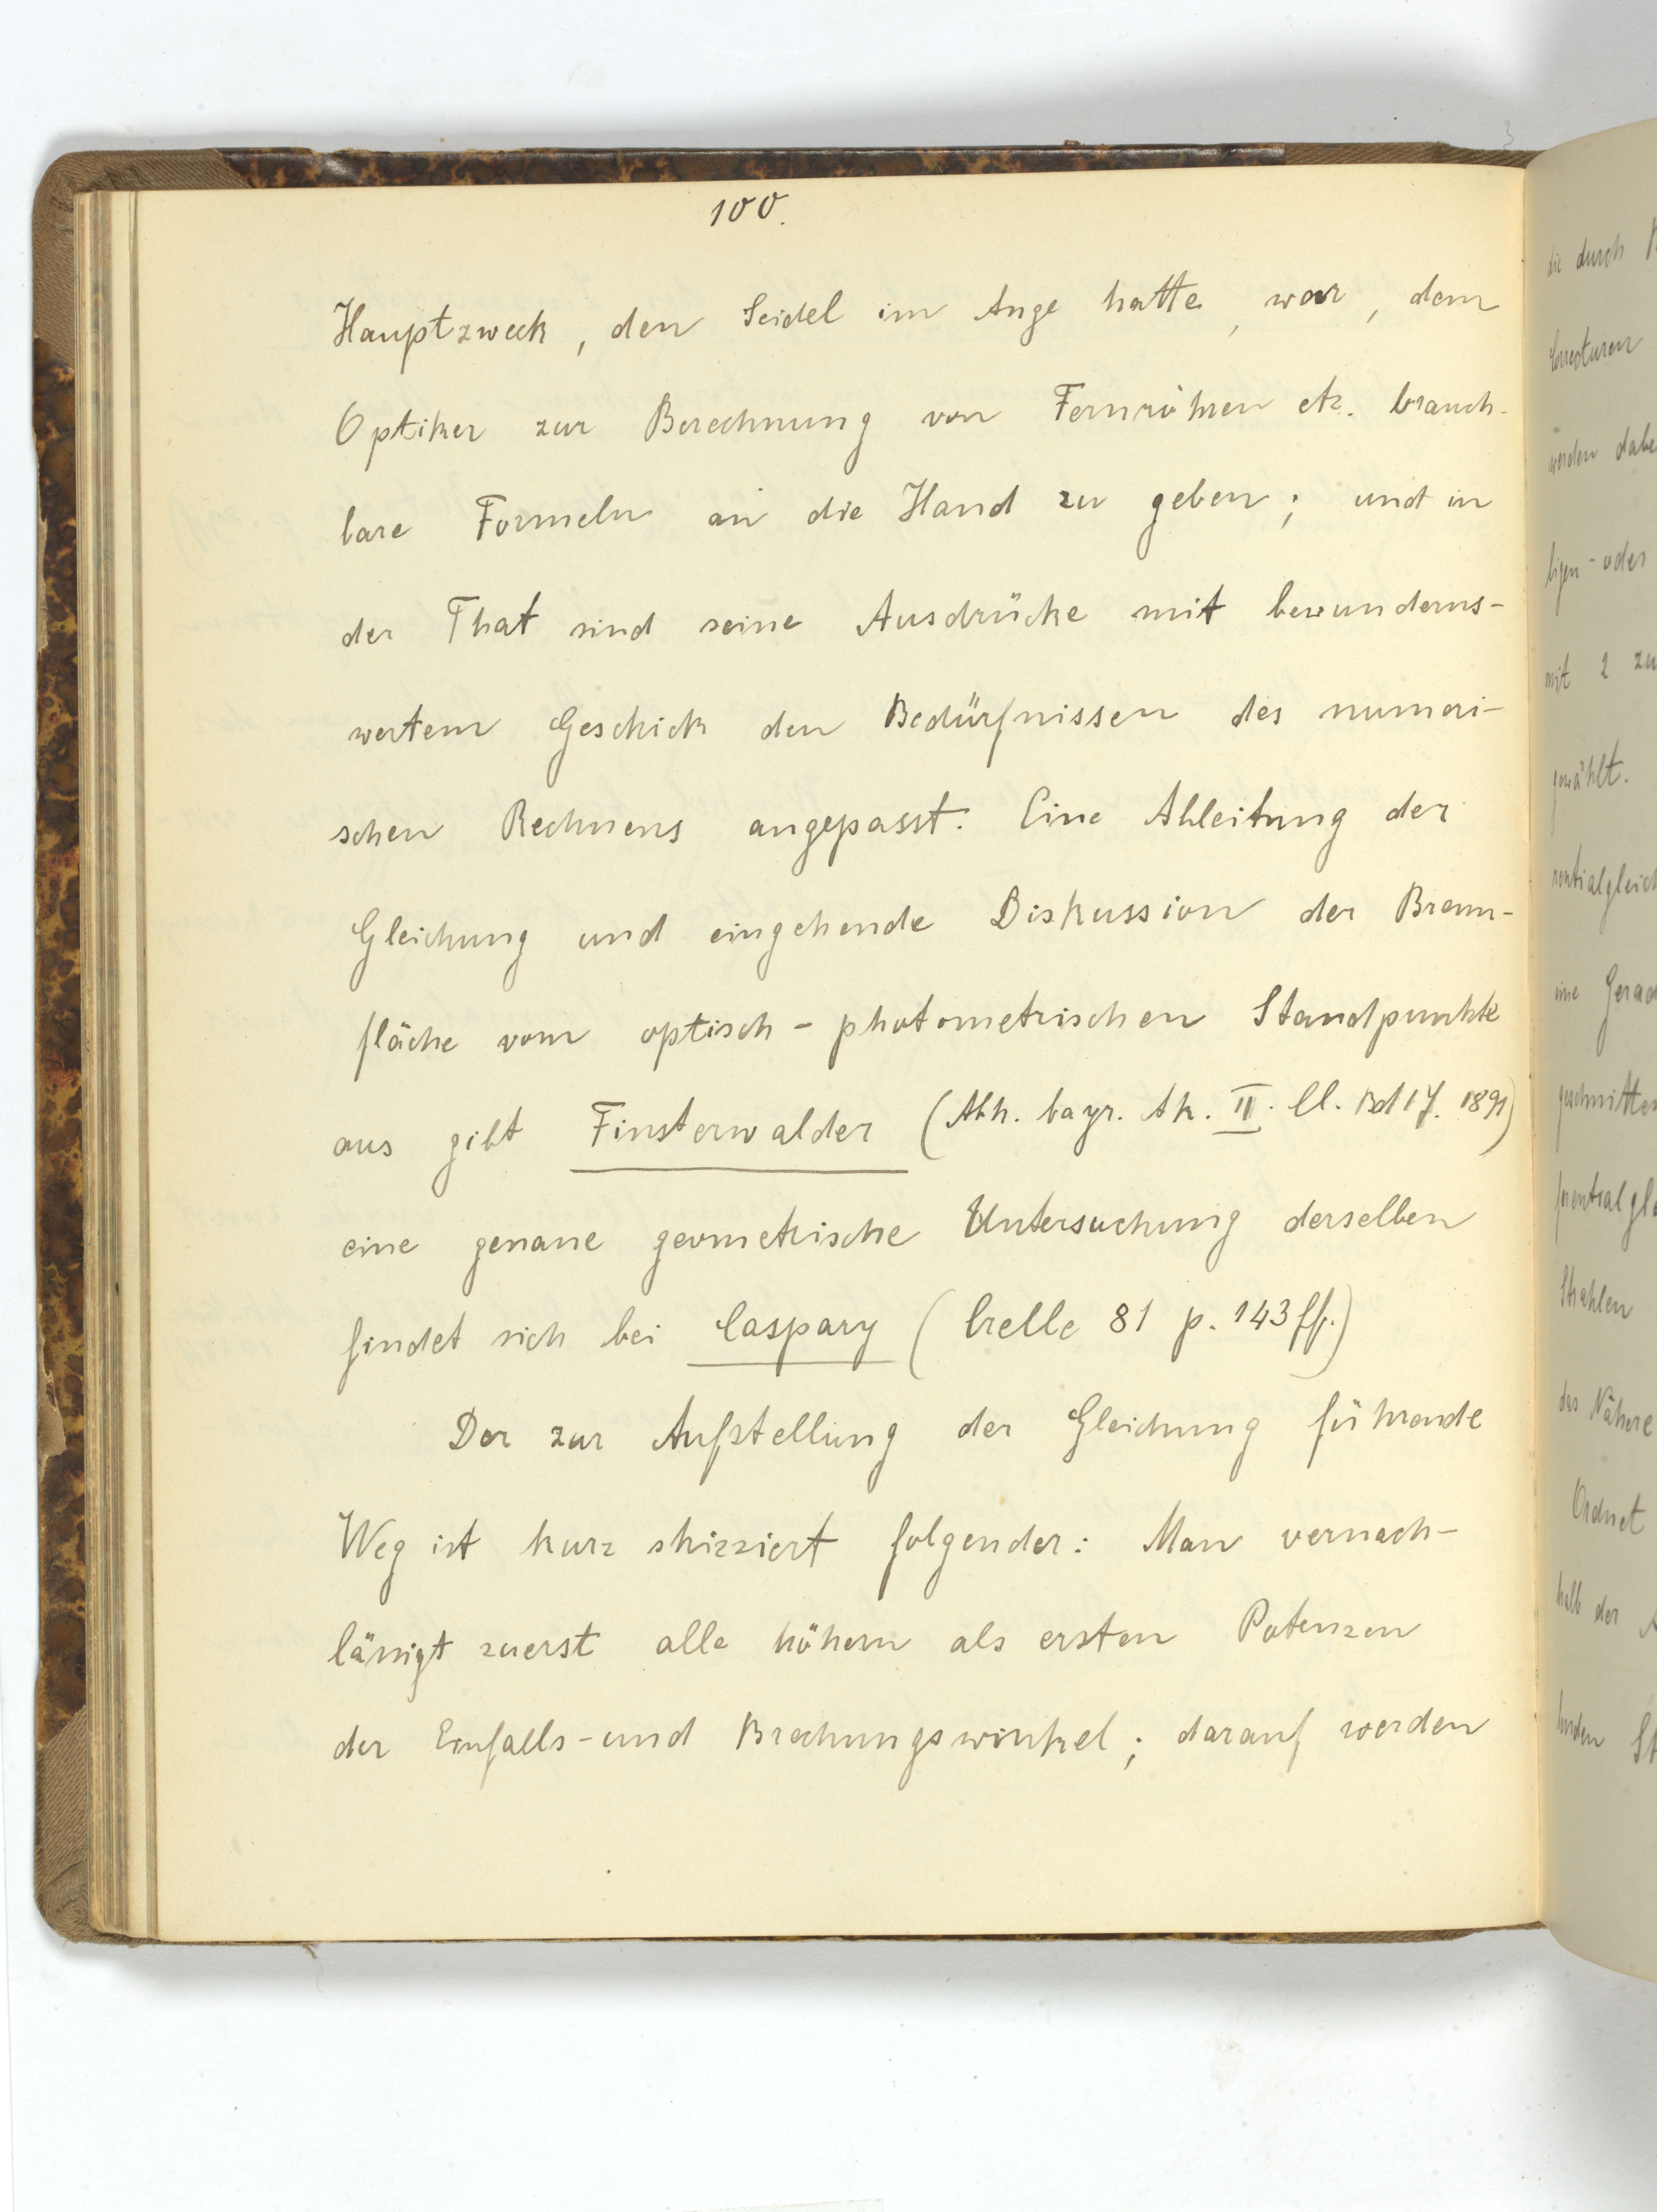 100.
Hauptzweck, den Seidel im Auge hatte, war, dem
Optiker zur Berechnung von Fernröhren etz. brauch-
bare Formeln an die Hand zu geben; und in
der That sind seine Ausdrücke mit bewunderns-
wertem Geschick den Bedürfnissen des numeri-
schen Rechnens angepasst. Eine Ableitung der
Gleichung und eingehende Diskussion der Brenn-
fläche vom optisch-photometrischen Standpunkte
aus gibt Finsterwalder (Abh. bayr. Ak. II. Cl. Bd 17. 1891)
eine genaue geometrische Untersuchung derselben
findet sich bei Caspary (Crelle 81 p. 143 ff.)
Der zur Aufstellung der Gleichung führende
Weg ist kurz skizziert folgender: Man vernach-
lässigt zuerst alle höhern als ersten Potenzen
der Einfalls-und Brechungswinkel; darauf werden
die durch
Correcturen
werden dabe
ligen-oder
mit 2 zu
gewählt.
rentialgleich
eine Gerad
geschnitten
ferentialgle
Strahlen
das Nähere
Ordnet
halb der
St